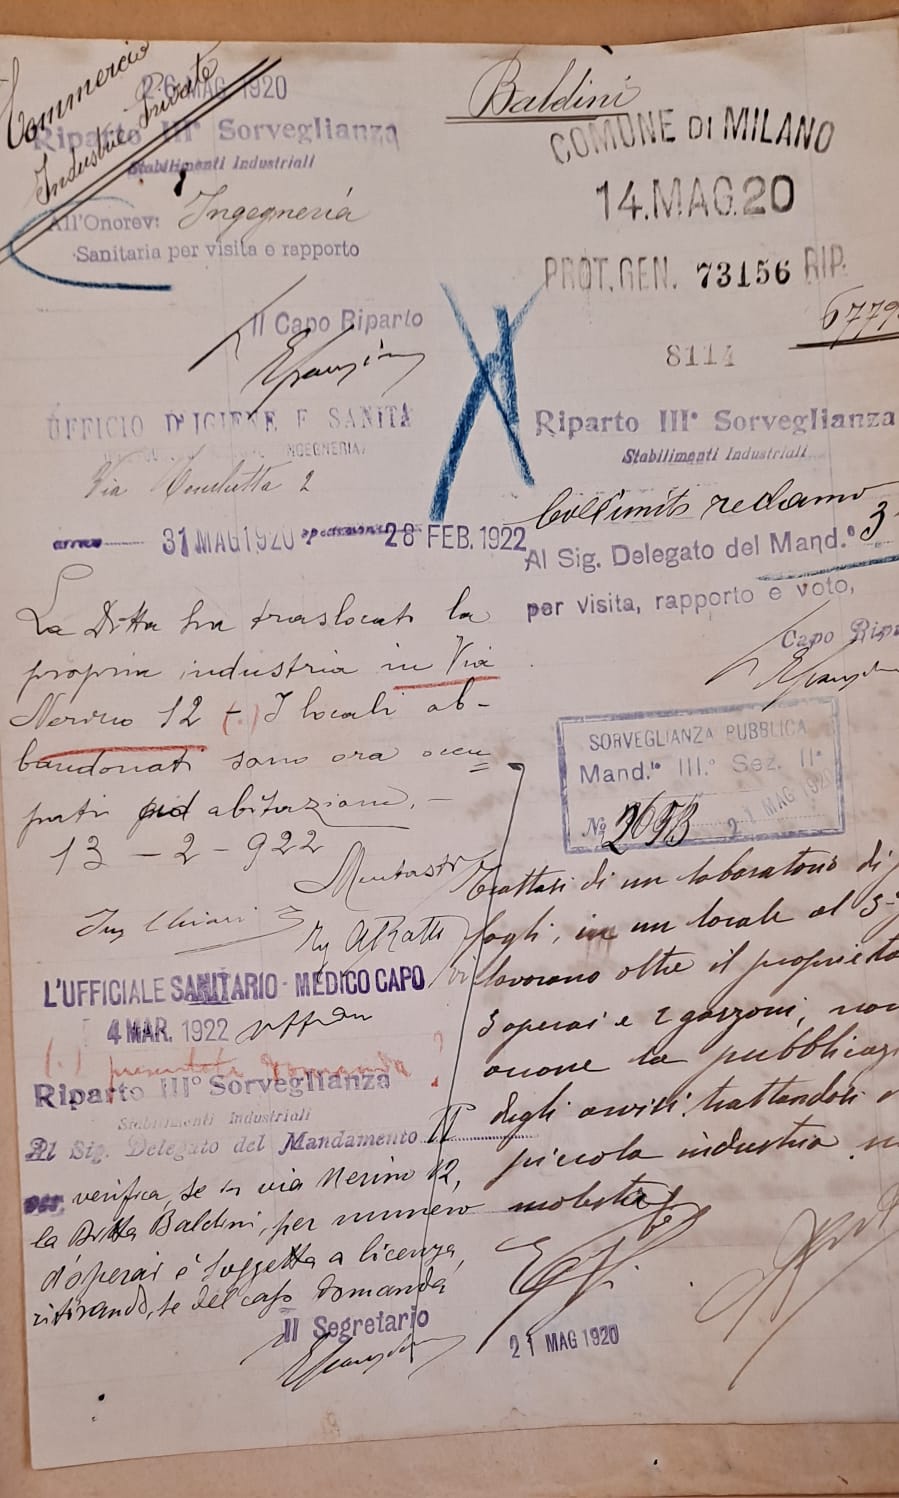 Commercio
Industrie Private
26 MAG 1920
Riparto III° Sorveglianza
Stabilimenti Industriali
All'Onorev: Ingegneria
Sanitaria per visita e rapporto
Il Capo Riparto
UFFICIO D'IGIENE E SANITÀ
INGEGNERIA
Via Conchetta 2
arrivo 31 MAG 1920 spedizione 28 FEB. 1922
La Ditta ha traslocato la
propria industria in Via
Nerino 12 (.) I locali ab-
bandonati sono ora occu
pati ad abitazione. -
13 - 2 - 922
Montastr
Ing Chiari
Ing A Ratti
L'UFFICIALE SANITARIO - MEDICO CAPO
4 MAR. 1922
(.) presentata domanda?
Riparto III° Sorveglianza
Stabilimenti Industriali
Al Sig. Delegato del Mandamento II
per verifica, se in via Nerino 12,
la Ditta Baldini, per numero
d'operai è soggetta a licenza,
ritirando, se del caso domanda
Il Segretario
Baldini
COMUNE DI MILANO
14.MAG.20
PROT. GEN. 73156 RIP.
6779
8114
Riparto III° Sorveglianza
Stabilimenti Industriali
Coll'unito reclamo
Al Sig. Delegato del Mand.° 3°
per visita, rapporto e voto,
Capo Ripa
SORVEGLIANZA PUBBLICA
Mand.to III.° Sez. II°
N° 2653 21 MAG 1920
Trattasi di un laboratorio di
fogli, in un locale al 3°
vi lavorano oltre il proprieta
3 operai e 2 garzoni, non
occorre la pubblicaz
degli avvisi trattandosi
piccola industria
molesta
21 MAG 1920